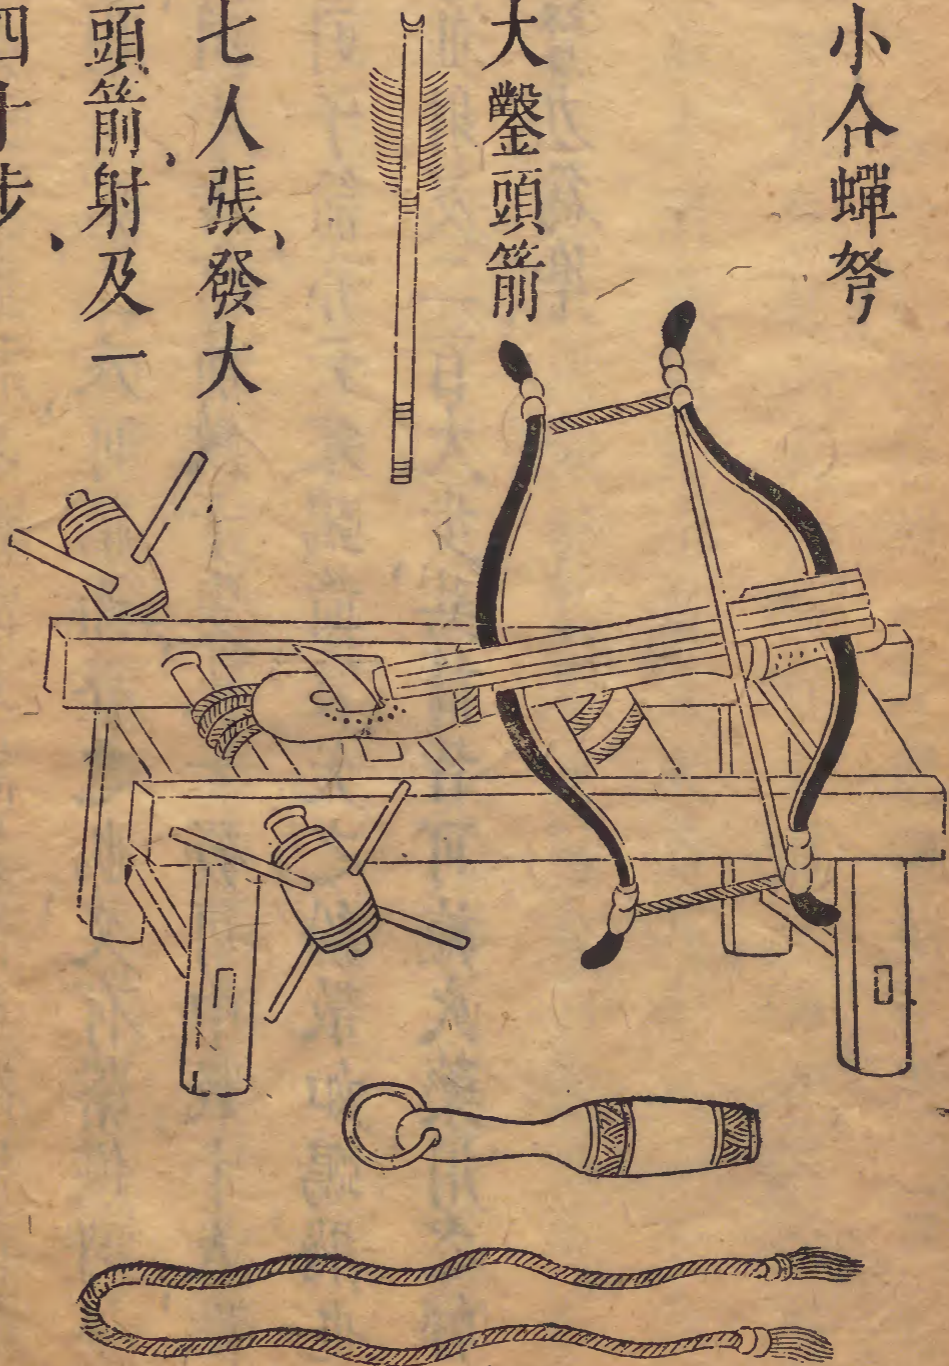 小合蟬弩
大鑿頭箭
七人張、發大
頭箭、射及一
四十步、